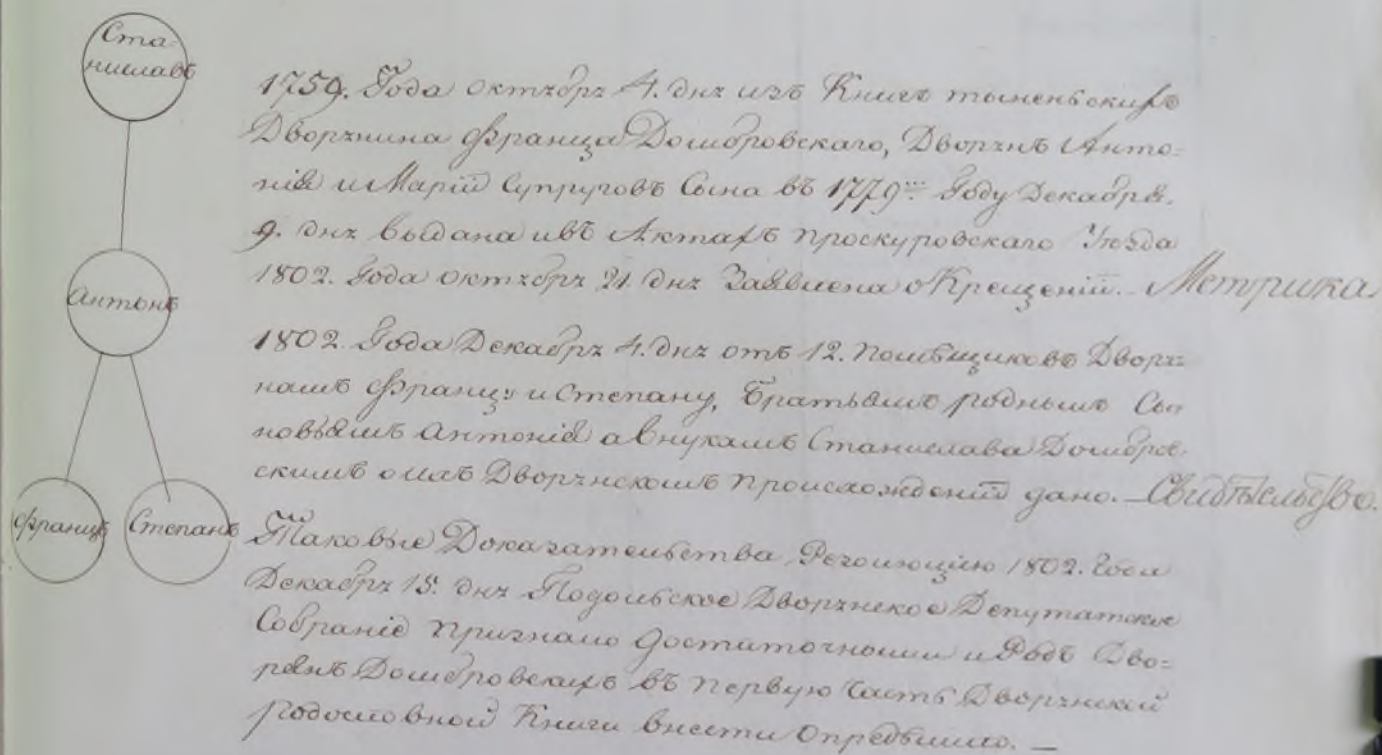 Ста-
ниславъ
Антонъ
Францъ
Степанъ
1759. Года октября 4. дня изъ Книгъ тыненьскихъ
Дворянина Франца Домбровскаго, Дворянъ Анто-
нія и Маріи Супруговъ Сына въ 1779мъ Году Декабря.
9. дня выдана и въ Актахъ Проскуровскаго Уѣзда
1802. Года октября 21. дня Заявлена о Крещеніи. – Метрика.
1802. Года Декабря 4. дня отъ 12. помѣщиковъ Дворя-
намъ Францу и Степану, Братьямъ роднымъ Сы-
новьямъ Антонія а Внукамъ Станислава Домбров-
скимъ о ихъ Дворянскомъ происхожденіи дано. – Свидѣтельство.
Таковые Доказательства Резолюціею 1802. Года
Декабря 15. дня Подольское Дворянское Депутатское
Собраніе признало достаточными и Родъ Дво-
рянъ Домбровскихъ въ первую Часть Дворянской
родословной Книги внести опредѣлило. –